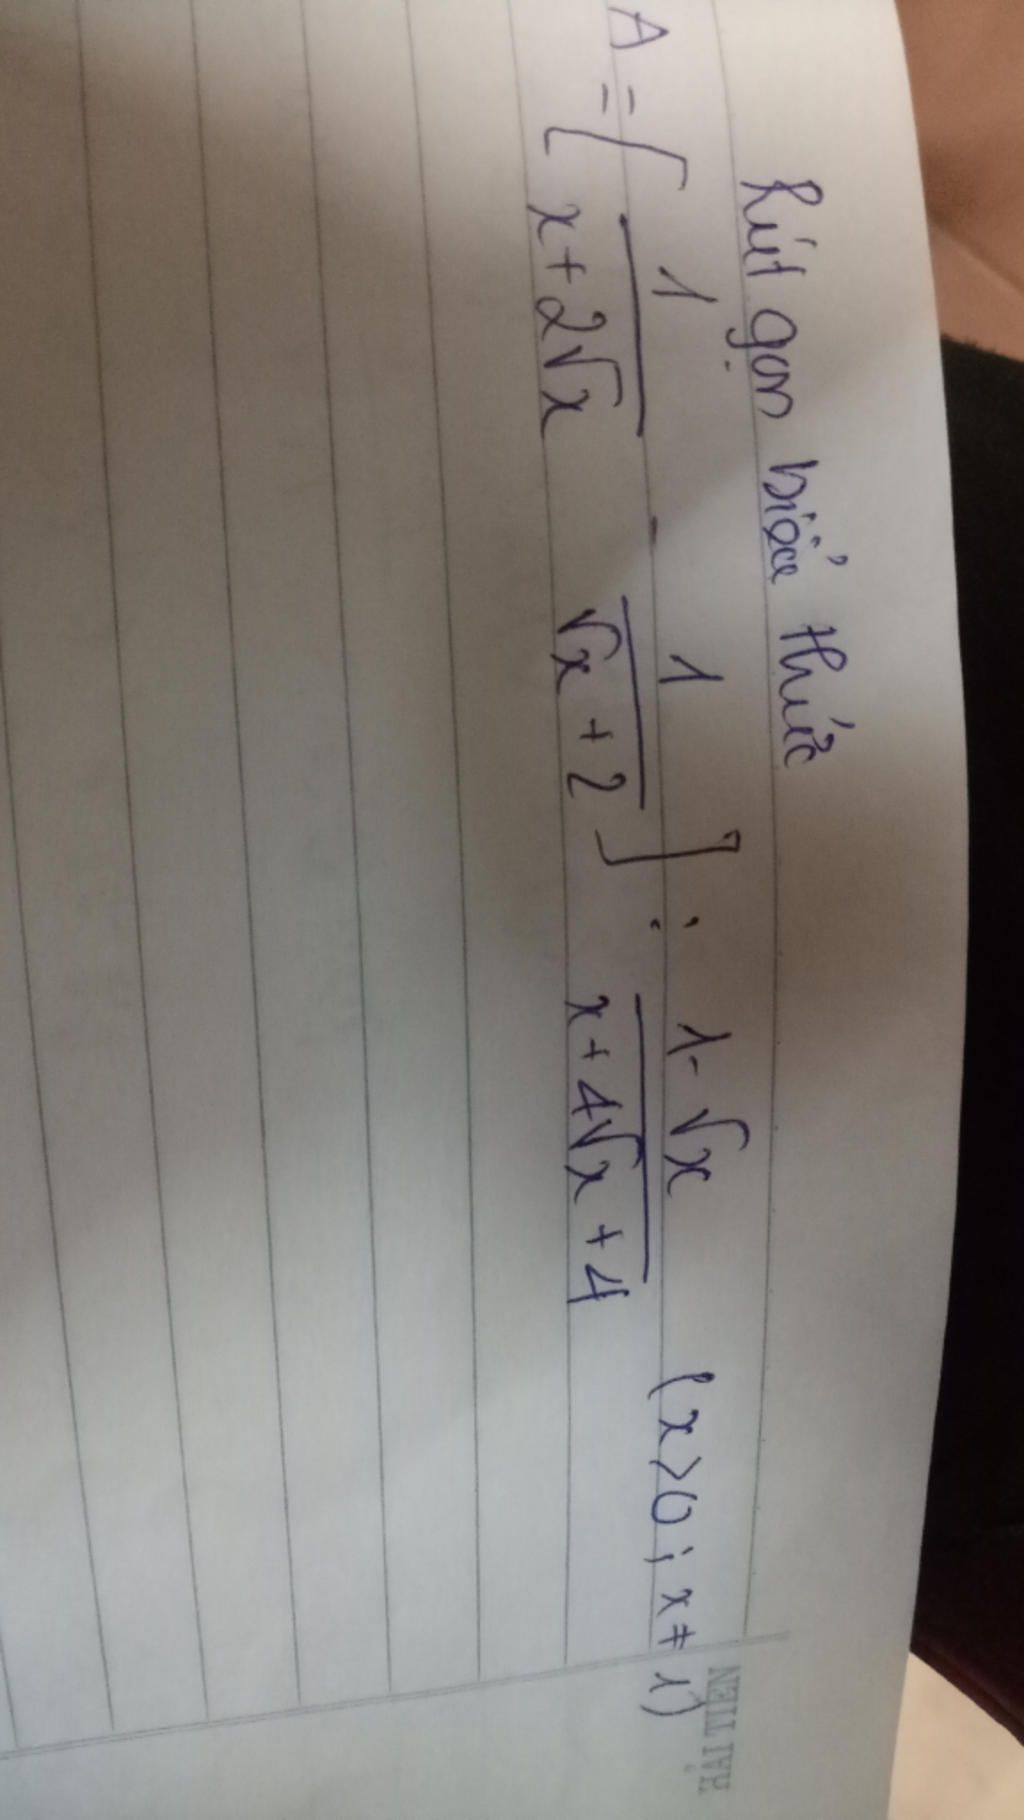 Rút gọn biểu thức
A = [ 1/(x+2√x) - 1/(√x + 2) ] : (1-√x)/(x+4√x+4) (x>0; x≠1)
HẢI TIẾN